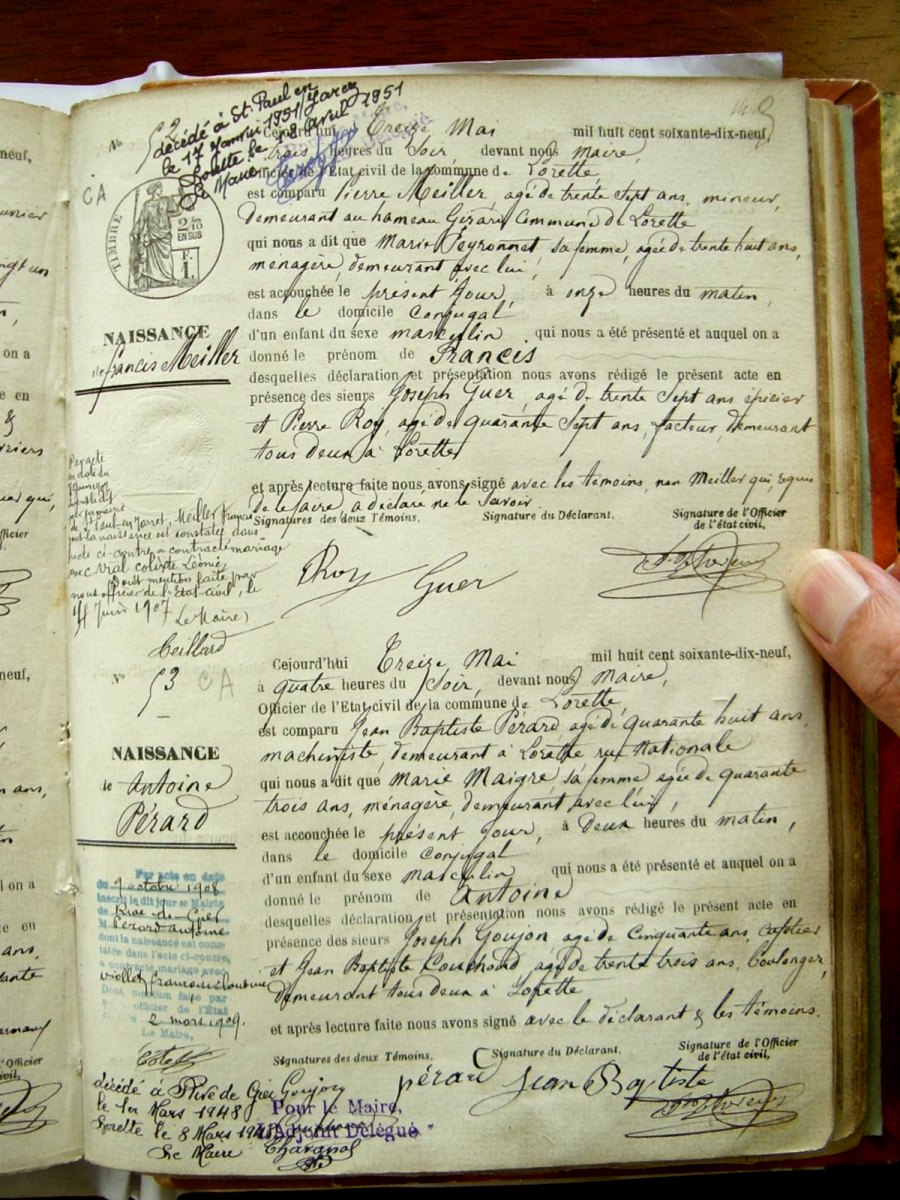 No 52
décédé à St Paul en Jarez
le 17 Janvier 1951
Lorette le 8 Avril 1951
Le Maire
CA
TIMBRE
2/10
EN SUS
F. 1
NAISSANCE
de Francis Meiller
Cejourd'hui Treize Mai mil huit cent soixante-dix-neuf,
à trois heures du Soir devant nous Maire,
Officier de l'Etat civil de la commune de Lorette,
est comparu Pierre Meiller, agé de trente sept ans, mineur,
demeurant au hameau Girard Commune de Lorette
qui nous a dit que Marie Peyronnet sa femme, agée de trente huit ans,
ménagère, demeurant avec lui,
est accouchée le présent jour, à onze heures du matin,
dans le domicile conjugal
d'un enfant du sexe masculin qui nous a été présenté et auquel on a
donné le prénom de Francis
desquelles déclaration et présentation nous avons rédigé le présent acte en
présence des sieurs Joseph Guer, agé de trente Sept ans épicier
et Pierre Roy, agé de quarante Sept ans, facteur, demeurant
tous deux à Lorette
et après lecture faite nous avons signé avec les témoins, non Meiller qui, requis
de le faire, a déclaré ne le Savoir
Signatures des deux Témoins. Signature du Déclarant. Signature de l'Officier
de l'état civil,
Par acte
en date du
de St Paul-en-Jarret, Meiller francis
dont la naissance est constatée dans
l'acte ci-contre a contracté mariage
avec Vial Léonie
Dont mention faite par
nous officier de l'Etat-civil, le
14 Juin 1907
Le Maire,
PRoy Guer
No 53
CA
NAISSANCE
de Antoine
Pérard
Cejourd'hui Treize Mai mil huit cent soixante-dix-neuf,
à quatre heures du Soir, devant nous Maire,
Officier de l'Etat civil de la commune de Lorette,
est comparu Jean Baptiste Pérard, agé de quarante huit ans,
machiniste, demeurant à Lorette rue Nationale
qui nous a dit que Marie Maigre, sa femme agée de quarante
trois ans, ménagère, demeurant avec lui,
est accouchée le présent jour, à Deux heures du matin,
dans le domicile conjugal
d'un enfant du sexe masculin qui nous a été présenté et auquel on a
donné le prénom de Antoine
desquelles déclaration et présentation nous avons rédigé le présent acte en
présence des sieurs Joseph Goujon, agé de Cinquante ans,
et Jean Baptiste Couchoud, agé de trente trois ans, boulanger,
demeurant tous deux à Lorette
et après lecture faite nous avons signé avec le déclarant & les témoins.
Signatures des deux Témoins. Signature du Déclarant. Signature de l'Officier
de l'état civil,
Par acte en date
du 9 octobre 1908
inscrit le dit jour en Mairie
de Rive-de-Gier
M. Pérard antoine
dont la naissance est cons-
tatée dans l'acte ci-contre,
a contracté mariage avec
Dont mention faite par
officier de l'Etat
2 mars 1909.
Le Maire,
Goujon pérard Jean Baptiste
décédé à Rive de Gier
le 1er Mars 1948
Lorette le 8 Mars 1948
Le Maire
Pour le Maire,
L'Adjoint Délégué